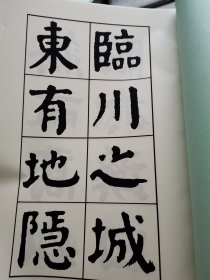 臨川之城
東有地隱